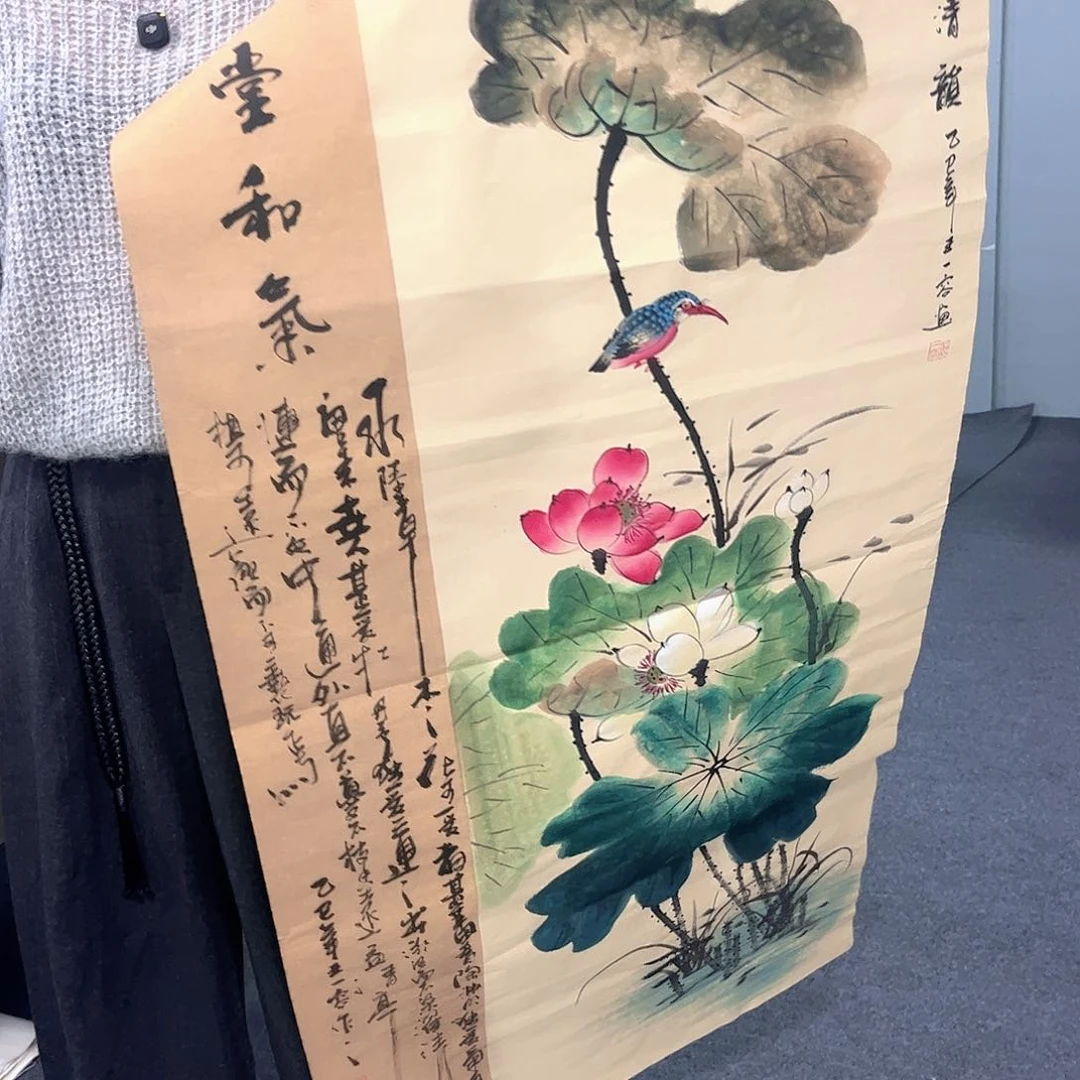 清韻
乙巳年王一容画
堂和氣
水陸草木之花可爱者甚蕃晋陶渊明独爱菊
甚爱牡丹予独爱蓮之出淤泥而不染濯清
漣而不妖中通外直不蔓不枝香遠益清亭
植可遠觀而不可褻玩焉
乙巳年王一容作
dji